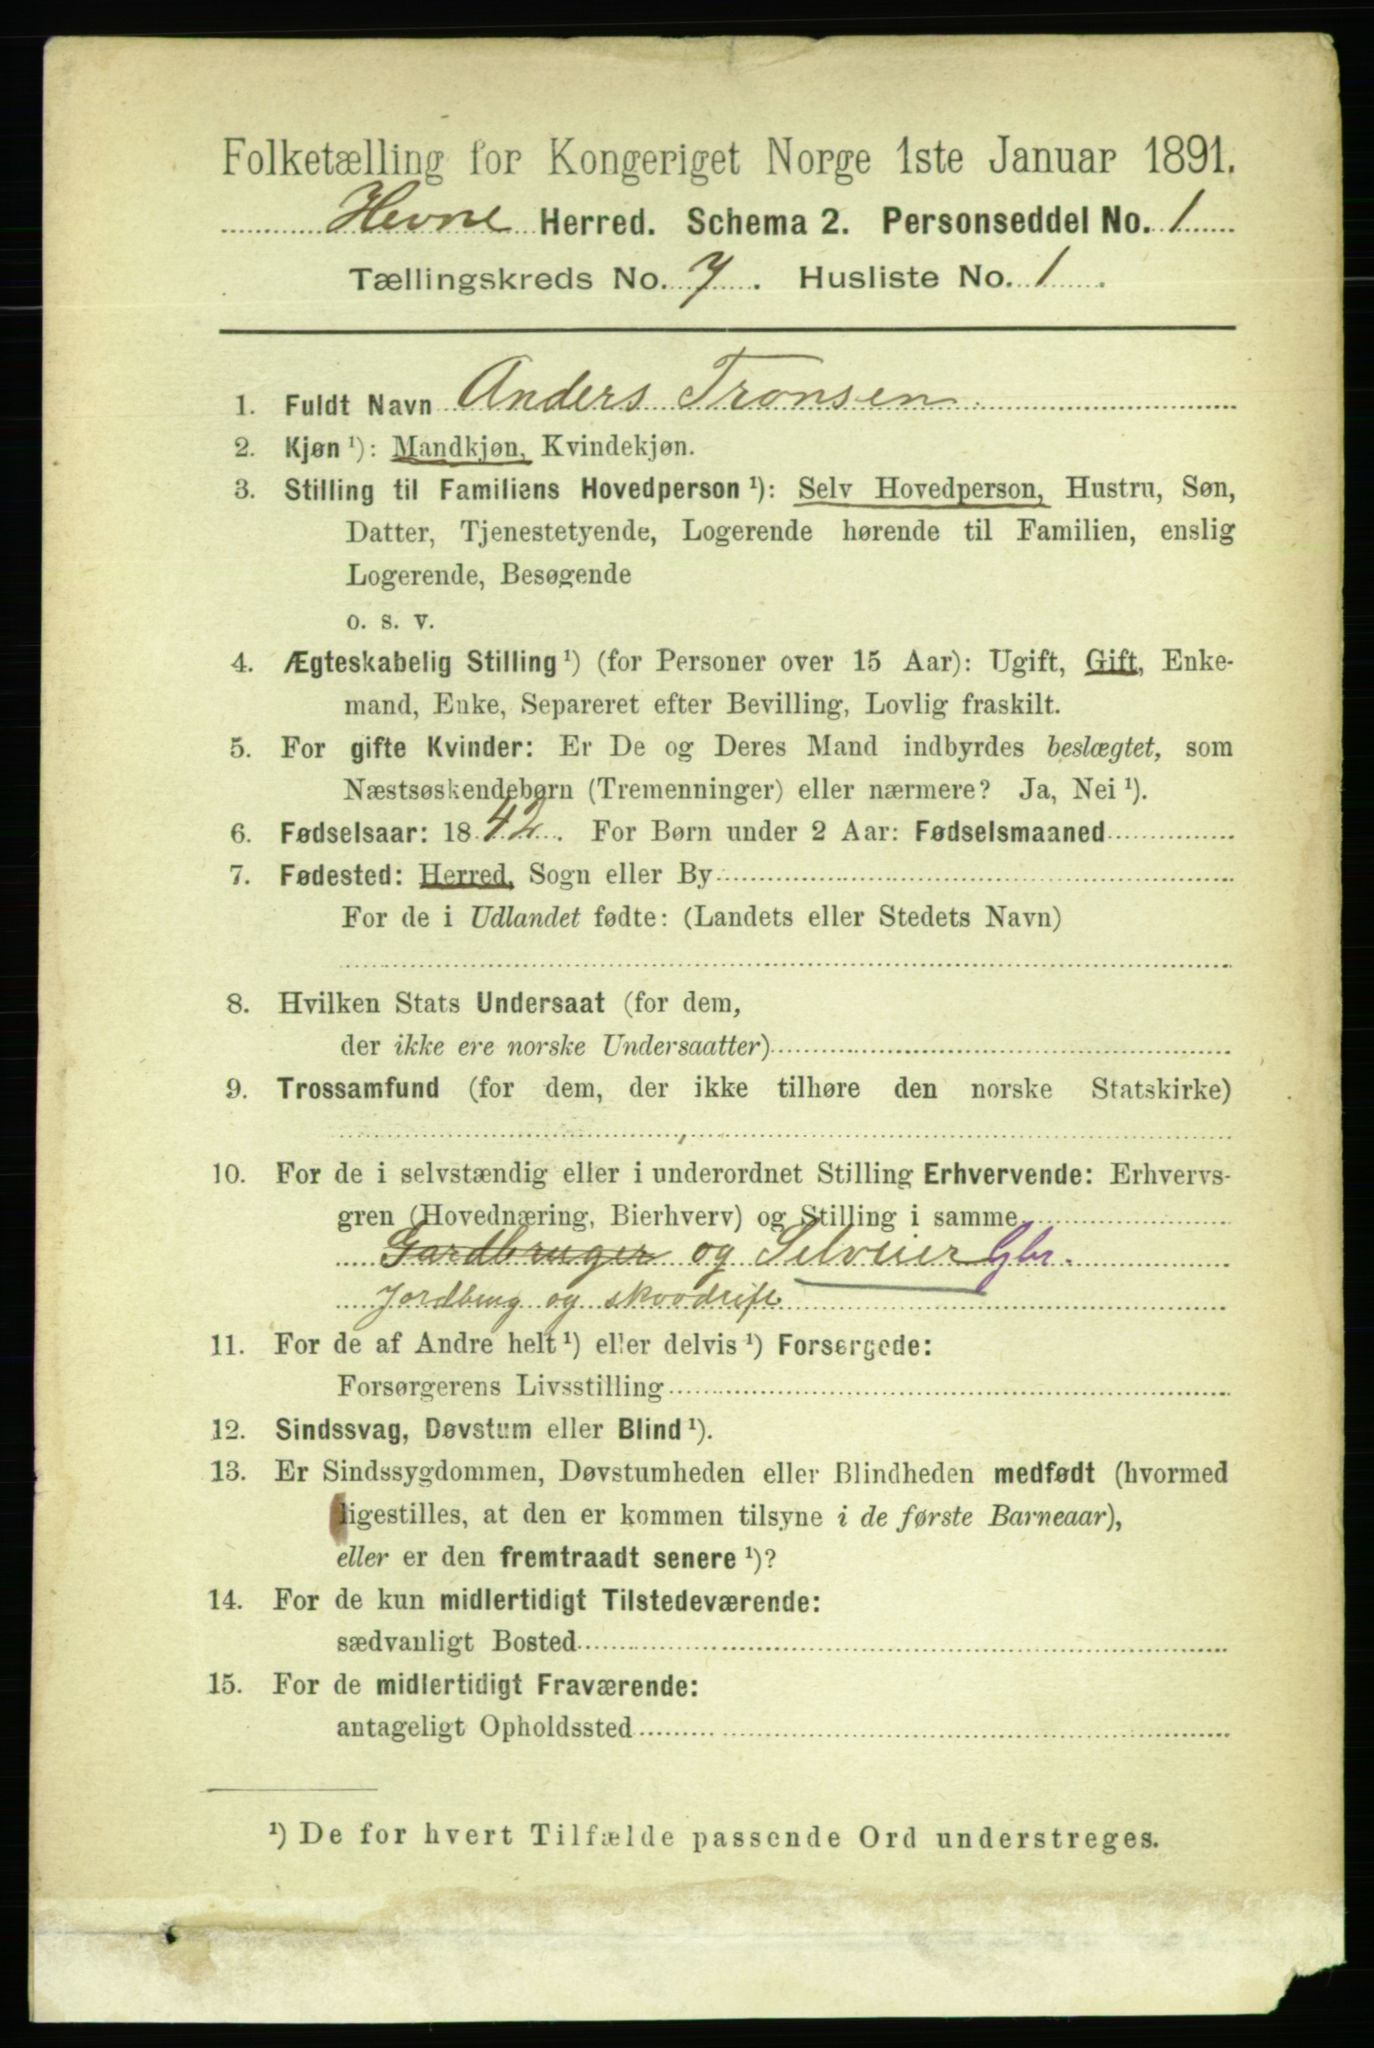 Folketælling for Kongeriget Norge 1ste Januar 1891.
Hevne Herred. Schema 2. Personseddel No. 1
Tællingskreds No. 7. Husliste No. 1.
1. Fuldt Navn Anders Tronsen
2. Kjøn ¹): Mandkjøn, Kvindekjøn.
3. Stilling til Familiens Hovedperson ¹): Selv Hovedperson, Hustru, Søn,
Datter, Tjenestetyende, Logerende hørende til Familien, enslig
Logerende, Besøgende
o. s. v.
4. Ægteskabelig Stilling ¹) (for Personer over 15 Aar): Ugift, Gift, Enke-
mand, Enke, Separeret efter Bevilling, Lovlig fraskilt.
5. For gifte Kvinder: Er De og Deres Mand indbyrdes beslægtet, som
Næstsøskendebørn (Tremenninger) eller nærmere? Ja, Nei ¹).
6. Fødselsaar: 1842. For Børn under 2 Aar: Fødselsmaaned
7. Fødested: Herred, Sogn eller By
For de i Udlandet fødte: (Landets eller Stedets Navn)
8. Hvilken Stats Undersaat (for dem,
der ikke ere norske Undersaatter)
9. Trossamfund (for dem, der ikke tilhøre den norske Statskirke)
10. For de i selvstændig eller i underordnet Stilling Erhvervende: Erhvervs-
gren (Hovednæring, Bierhverv) og Stilling i samme
Gardbruger og Selveier Gbr.
Jordbrug og skovdrift
11. For de af Andre helt ¹) eller delvis ¹) Forsørgede:
Forsørgerens Livsstilling
12. Sindssvag, Døvstum eller Blind ¹).
13. Er Sindssygdommen, Døvstumheden eller Blindheden medfødt (hvormed
ligestilles, at den er kommen tilsyne i de første Barneaar),
eller er den fremtraadt senere ¹)?
14. For de kun midlertidigt Tilstedeværende:
sædvanligt Bosted
15. For de midlertidigt Fraværende:
antageligt Opholdssted
¹) De for hvert Tilfælde passende Ord understreges.